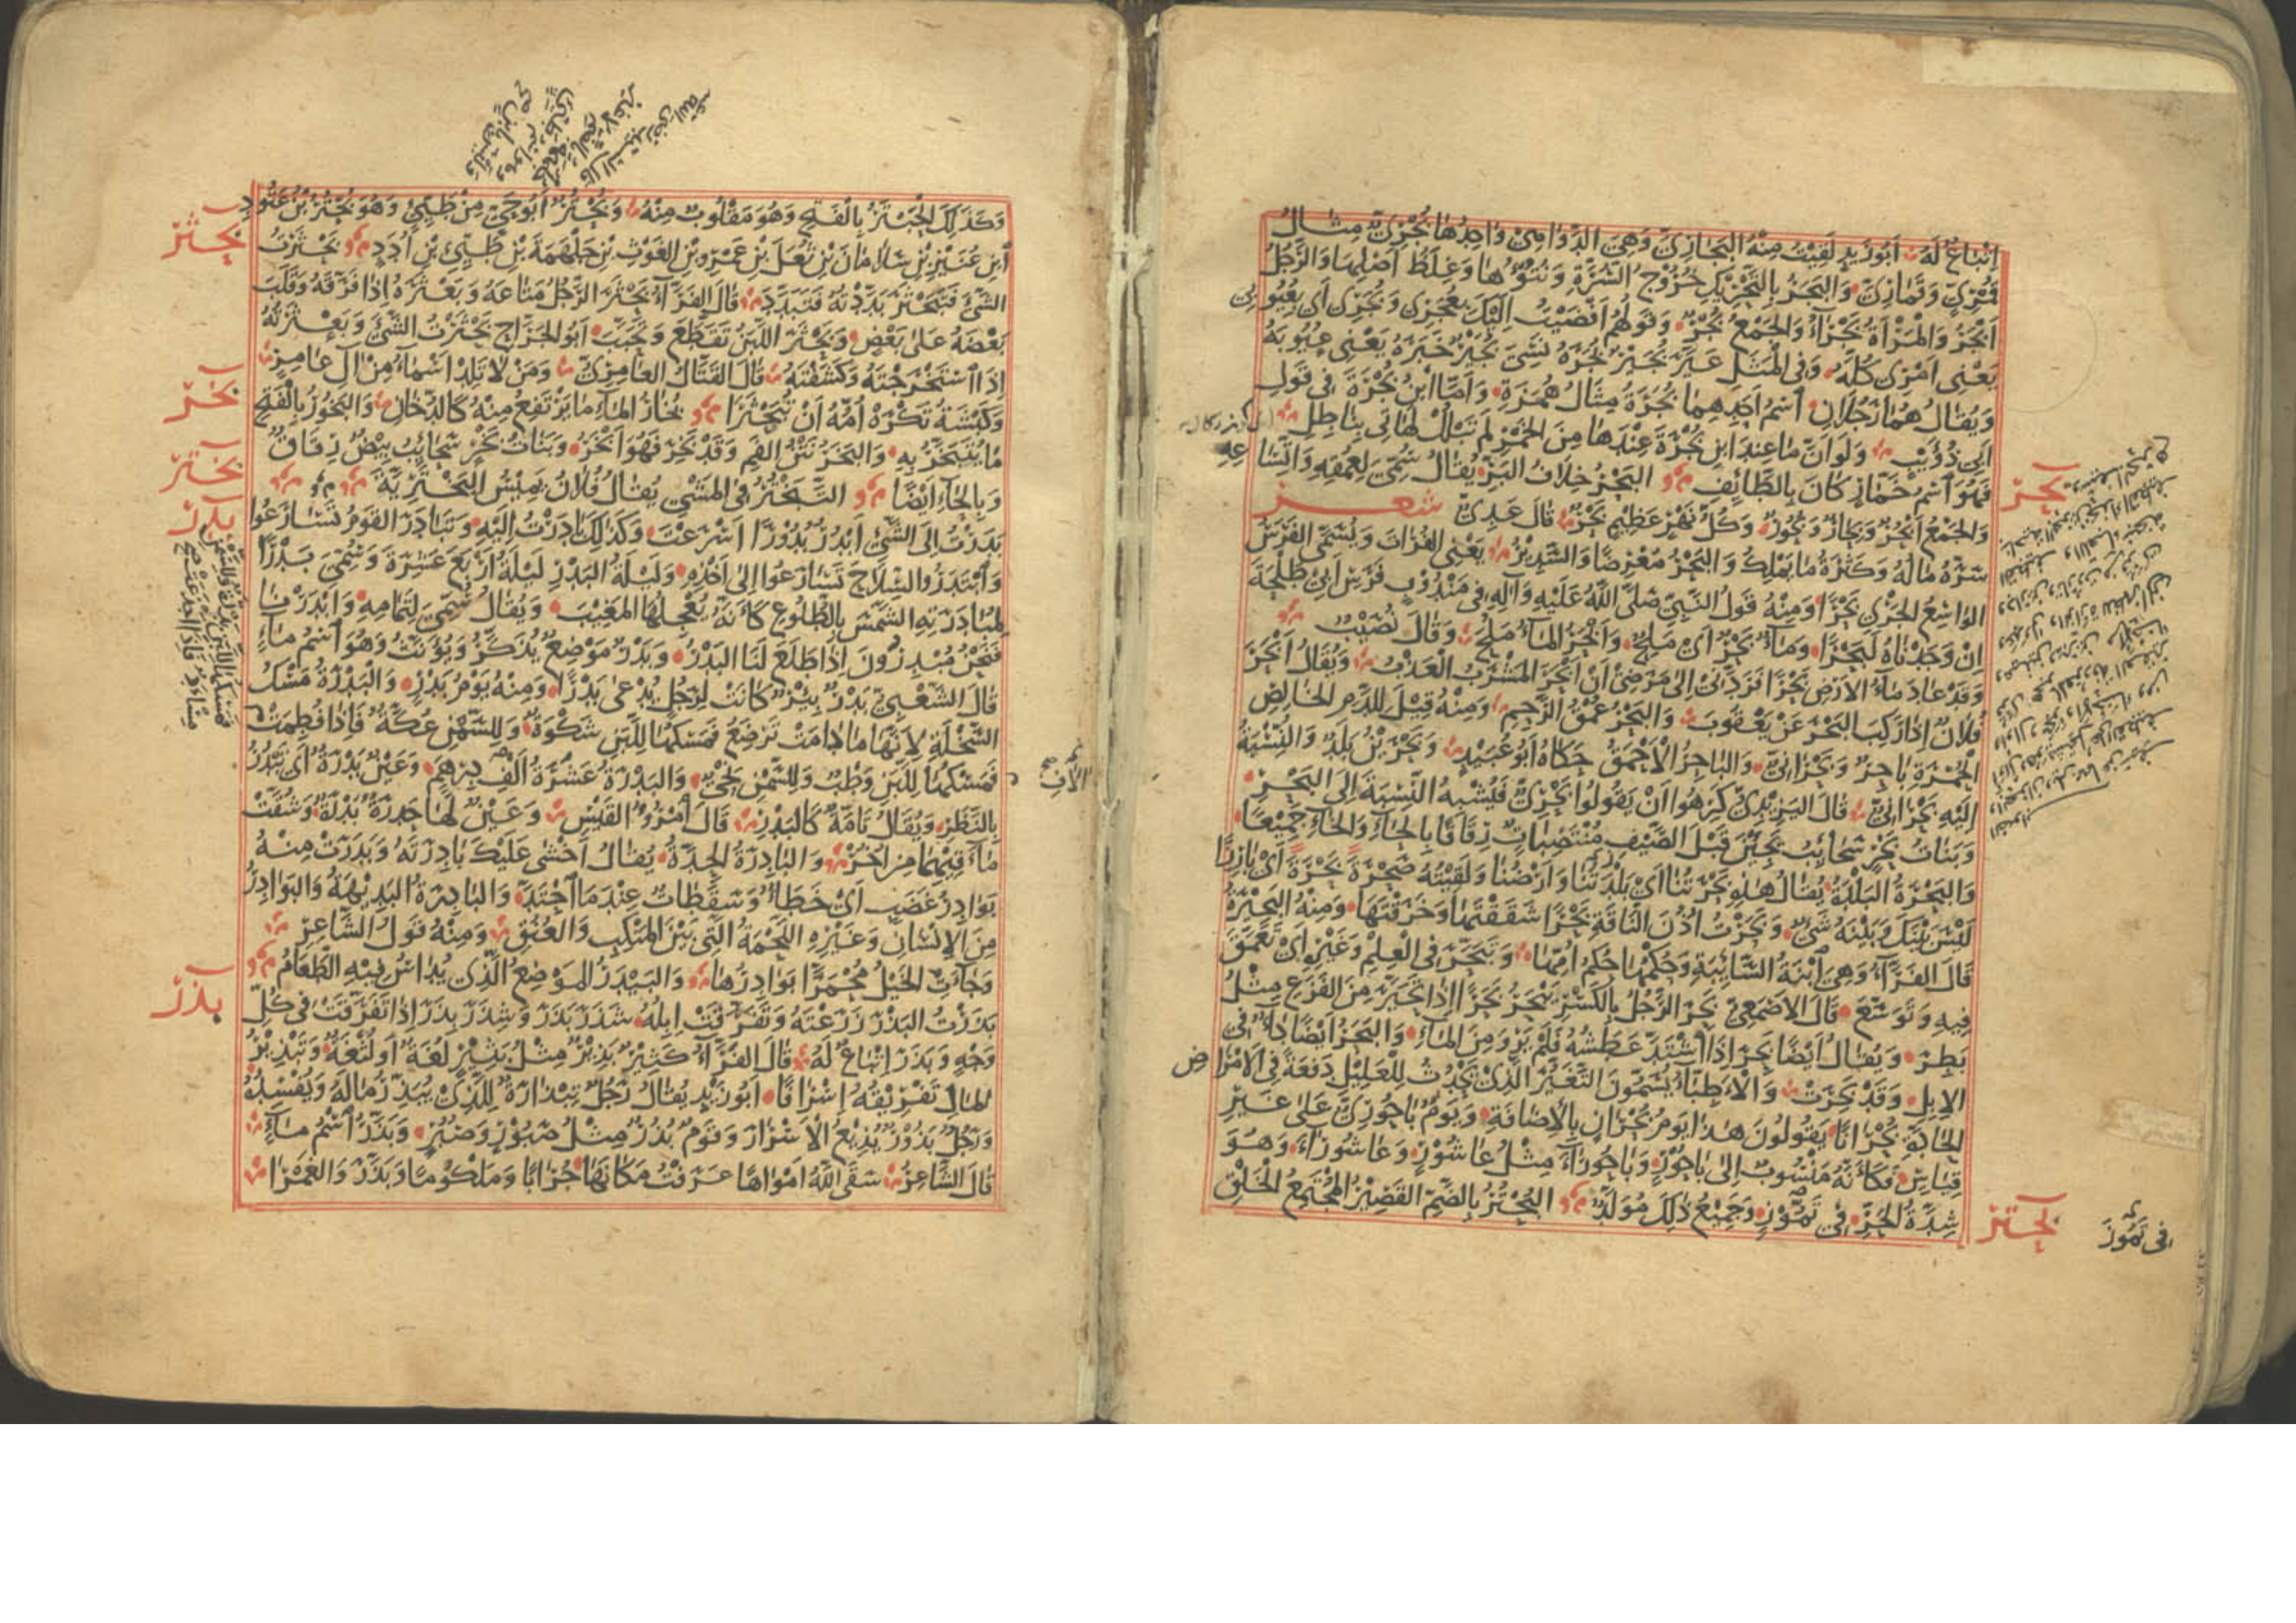 اِتْبَاعٌ لَهُ اَبُو زَيْدٍ لَقِيْتُ مِنْهُ البَجَارِيَّ وَهِيَ الدَّوَاهِيْ وَاحِدُهَا بُجْرِيٌّ مِثَالُ
قُمْرِيٍّ وَقَمَارِيَّ وَالبَجَرُ بِالتَّحْرِيْكِ خُرُوْجُ السُّرَّةِ وَنُتُوُّهَا وَغِلَظُ اَصْلِهَا وَالرَّجُلُ
اَبْجَرُ وَالْمَرْأَةُ بَجْرَاءُ وَالجَمْعُ بُجْرٌ وَقَوْلُهُمْ اَفْضَيْتُ اِلَيْكَ بِعُجَرِي وَبُجَرِي اَي بِعُيُوبِي
يَعْنِي اَمْرِي كُلَّهُ وَفِي المَثَل عَيَّرَ بُجَيْرٌ بُجَرَهْ نَسِيَ بُجَيْرٌ خَبَرَهْ يَعْنِي عُيُوبَهُ
وَيُقَالُ هُمَا رَجُلَانِ اسْمُ اَحَدِهِمَا بُجَرَةُ مِثَالُ هُمَزَةٍ وَاَمَّا ابْنُ بُجْرَةَ فِي قَولِ
اَبِي ذُؤَيْبٍ وَلَو اَنَّ مَا عِنْدَ ابْنِ بُجْرَةَ عِنْدَهَا مِنَ الخَمْرِ لَمْ تَبْلُلْ لَهَاتِي بِنَاطِلِ
فَهُوَ اسْم خَمَّارٍ كَانَ بِالطَّائِفِ البَحْرُ خِلَافُ البَرِّ يُقَالُ سُمِّيَ لِعُمْقِهِ وَاتِّسَاعِهِ
بحر
وَالجَمْعُ اَبْحُرٌ وَبِحَارٌ وَبُحُوْرٌ وَكُلُّ نَهْرٍ عَظِيْمٍ بَحْرٌ قَالَ عَدِيٌّ شعر
سَرَّهُ مَالُهُ وَكَثْرَةُ مَا يَمْلِكُ وَالبَحْرُ مُعْرِضًا وَالسَّدِيْرُ يَعْنِي الفُرَاتَ وَيُسَمَّى الفَرَسُ
الوَاسِعُ الجَرْيِ بَحْرًا وَمِنْهُ قَولُ النَّبِيِّ صَلَّى اللهُ عَلَيْهِ وَآلِهِ فِي مَنْدُوْبٍ فَرَسِ اَبِيْ طَلْحَةَ
اِنْ وَجَدْنَاهُ لَبَحْرًا وَمَاءٌ بَحْرٌ اَيْ مِلْحٌ وَاَبْحَرَ المَاءُ مَلُحَ وَقَالَ نُصَيْبٌ
وَقَدْ عَادَ مَاءُ الاَرْضِ بَحْرًا فَزَادَنِيْ اِلَى مَرَضِيْ اَنْ اَبْحَرَ المَشْرَبُ العَذْبُ وَيُقَالُ اَبْحَرَ
فُلَانٌ اِذَا رَكِبَ البَحْرَ عَنْ يَعْقُوبَ وَالبَحْرُ عُمْقُ الرَّحِمِ وَمِنْهُ قِيْلَ لِلدَّمِ الخَالِصِ
الحُمْرَةِ بَاحِرٌ وَبَحْرَانِيٌّ وَالبَاحِرُ الاَحْمَقُ حَكَاهُ اَبُو عُبَيْدٍ وَبَحْرَيْنُ بَلَدٌ وَالنِّسْبَةُ
اِلَيْهِ بَحْرَانِيٌّ قَالَ اليَزِيْدِيُّ كَرِهُوا اَنْ يَقُولُوا بَحْرِيٌّ فَيُشْبِهُ النِّسْبَةَ اِلَى البَحْرِ
وَبَنَاتُ بَحْرٍ سَحَائِبُ يَجِئْنَ قَبْلَ الصَّيْفِ مُنْتَصِبَاتٍ رِقَاقًا بِالحَاءِ وَالخَاءِ جَمِيْعًا
وَالبَحْرَةُ البَلْدَةُ يُقَالُ هَذِهِ بَحْرَتُنَا اَيْ بَلْدَتُنَا وَاَرْضُنَا وَلَقِيْتُهُ صَحْرَةَ بَحْرَةَ اَيْ بَارِزًا
لَيْسَ بَيْنَكَ وَبَيْنَهُ شَيْءٌ وَبَحَرْتُ اُذُنَ النَّاقَةِ بَحْرًا شَقَقْتُهَا وَخَرَقْتَهَا وَمِنْهُ البَحِيْرَةُ
قَالَ الفَرَّاءُ وَهِيَ ابْنَةُ السَّائِبَةِ وَحُكْمُهَا حُكْمُ اُمِّهَا وَتَبَحَّرَ فِي العِلْمِ وَغَيْرِهِ اَيْ تَعَمَّقَ
فِيهِ وَتَوَسَّعَ قَالَ الاَصْمَعِيُّ بَحِرَ الرَّجُلُ بِالكَسْرِ يَبْحَرُ بَحَرًا اِذَا تَحَيَّرَ مِنَ الفَزَعِ مِثْلُ
بَطِرَ وَيُقَالُ اَيْضًا بَحِرَ اِذَا اشْتَدَّ عَطَشُهُ فَلَمْ يَرْوَ مِنَ المَاءِ وَالبَحَرُ اَيْضًا دَاءٌ فِي
الاِبِلِ وَقَدْ بَحِرَتْ وَالاَطِبَّاءُ يُسَمُّونَ التَّغَيُّرَ الَّذِيْ يَحْدُثُ لِلْعَلِيْلِ دَفْعَةً فِي الاَمْرَاضِ
الحَادَّةِ بُحْرَانًا يَقُولُونَ هَذَا يَومُ بُحْرَانٍ بِالاِضَافَةِ وَيَومٌ بَاحُوْرِيٌّ عَلَى غَيْرِ
قِيَاسٍ فَكَأَنَّهُ مَنْسُوبٌ اِلَى بَاحُوْرٍ وَبَاحُورَاءَ مِثْلُ عَاشُوْرٍ وَعَاشُورَاءَ وَهُوَ
شِدَّةُ الحَرِّ فِي تَمُّوْزَ وَجَمِيْعُ ذَلِكَ مُوَلَّدٌ البُحْتُرُ بِالضَّمِّ القَصِيْرُ المُجْتَمِعُ الخَلْقِ
بحتر
فى تَمُّوْزَ
وَكَذَلِكَ الحَبْتَرُ بِالفَتْحِ وَهُوَ مَقْلُوبٌ مِنْهُ وَبُحْتُرٌ اَبُو حَيٍّ مِنْ طَيِّئٍ وَهُوَ بُحْتُرُ بْنُ عَتُودِ
ابْنِ عُنَيْزِ بْنِ سَلَامَانَ بْنِ ثُعَلَ بْنِ عَمْرِو بْنِ الغَوْثِ بْنِ جَلْهَمَةَ بْنِ طَيِّئِ بْنِ اُدَدٍ بَحْثَرْتُ
بحثر
الشَّيْءَ فَتَبَحْثَرَ بَدَّدْتُهُ فَتَبَدَّدَ قَالَ الفَرَّاءُ بَحْثَرَ الرَّجُلُ مَتَاعَهُ وَبَعْثَرَهُ اِذَا فَرَّقَهُ وَقَلَبَ
بَعْضَهُ عَلَى بَعْضٍ وَبَحْثَرَ اللَّبَنُ تَقَطَّعَ وَتَحَبَّبَ اَبُو الجَرَّاحِ بَحْثَرْتُ الشَّيْءَ وَبَعْثَرْتُهُ
اِذَا اسْتَخْرَجْتَهُ وَكَشَفْتَهُ قَالَ القَتَّالُ العَامِرِيُّ وَمَنْ لَا تَلِدْ اَسْمَاءُ مِنْ آلِ عَامِرٍ
وَكَبْشَةُ تُكْرَهْ اُمُّهُ اَنْ تُبَحْثَرَا بُخَارُ المَاءِ مَا يَرْتَفِعُ مِنْهُ كَالدُّخَانِ وَالبَخُورُ بِالفَتْحِ
بخر
مَا يُتَبَخَّرُ بِهِ وَالبَخَرُ نَتْنُ الفَمِ وَقَدْ بَخِرَ فَهُوَ اَبْخَرُ وَبَنَاتُ بَخْرٍ سَحَائِبُ بِيْضٌ رِقَاقٌ
وَبِالحَاءِ اَيْضًا التَّبَخْتُرُ فِي المَشْيِ يُقَالُ فُلَانٌ يَمْشِي البَخْتَرِيَّةَ
بختر
بَدَرْتُ اِلَى الشَّيْءِ اَبْدُرُ بُدُوْرًا اَسْرَعْتُ وَكَذَلِكَ بَادَرْتُ اِلَيْهِ وَتَبَادَرَ القَوْمُ تَسَارَعُوا
بدر
وَابْتَدَرُوا السِّلَاحَ تَسَارَعُوا اِلَى اَخْذِهِ وَلَيْلَةُ البَدْرِ لَيْلَةُ اَرْبَعَ عَشِرَةَ وَسُمِّيَ بَدْرًا
لِمُبَادَرَتِهِ الشَّمْسَ بِالطُّلُوعِ كَاَنَّهُ يُعْجِلُهَا المَغِيْبَ وَيُقَالُ سُمِّيَ لِتَمَامِهِ وَاَبْدَرْنَا
فَنَحْنُ مُبْدِرُونَ اِذَا طَلَعَ لَنَا البَدْرُ وَبَدْرٌ مَوْضِعٌ يُذَكَّرُ وَيُؤَنَّثُ وَهُوَ اسْمُ مَاءٍ
قَالَ الشَّعْبِيُّ بَدْرٌ بِئْرٌ كَانَتْ لِرَجُلٍ يُدْعَى بَدْرًا وَمِنْهُ يَوْمُ بَدْرٍ وَالبَدْرَةُ مَسْكُ
السَّخْلَةِ لِاَنَّهَا مَا دَامَتْ تَرْضَعُ فَمَسْكُهَا لِلَّبَنِ شَكْوَةٌ وَلِلسَّمْنِ عُكَّةٌ فَاِذَا فُطِمَتْ
فَمَسْكُهَا لِلَّبَنِ وَطْبٌ وَلِلسَّمْنِ نِحْيٌ وَالبَدْرَةُ عَشَرَةُ اَلْفِ دِرْهَمٍ وَعَيْنٌ بَدْرَةٌ اَى تَبْدُرُ
بِالنَّظَرِ وَيُقَالُ تَامَّةٌ كَالبَدْرِ قَالَ امْرُؤُ القَيْسِ وَعَيْنٌ لَهَا حَدْرَةٌ بَدْرَةٌ وَشُقَّتْ
مَآقِيْهِمَا مِنْ اُخُرْ وَالبَادِرَةُ الحِدَّةُ يُقَالُ اَخْشَى عَلَيْكَ بَادِرَتَهُ وَبَدَرَتْ مِنْهُ
بَوَادِرُ غَضَبٍ اَيْ خَطَأٌ وَسَقَطَاتٌ عِنْدَمَا احْتَدَّ وَالبَادِرَةُ البَدِيْهَةُ وَالبَوَادِرُ
مِنَ الاِنْسَانِ وَغَيْرِهِ اللَّحْمَةُ الَّتِي بَيْنَ المَنْكِبِ وَالعُنُقِ وَمِنْهُ قَوْلُ الشَّاعِرِ
وَجَاءَتِ الخَيْلُ مُحْمَرًّا بَوَادِرُهَا وَالبَيْدَرُ المَوْضِعُ الَّذِي يُدَاسُ فِيْهِ الطَّعَامُ
بَذَرْتُ البَذْرَ زَرَعْتَهُ وَتَفَرَّقَتْ اِبِلُهُ شَذَرَ بَذَرَ وَشِذَرَ بِذَرَ اِذَا تَفَرَّقَتْ فِي كُلِّ
بذر
وَجْهٍ وَبَذَرَ اِتْبَاعٌ لَهُ قَالَ الفَرَّاءُ كَثِيْرٌ بَذِيْرٌ مِثْلُ بَثِيْرٍ لُغَةٌ اَو لُثْغَةٌ وَتَبْذِيْرُ
المَالِ تَفْرِيْقُهُ اِسْرَافًا اَبُو زَيْدٍ يُقَالُ رَجُلٌ تِبْذَارَةٌ لِلَّذِيْ يُبَذِّرُ مَالَهُ وَيُفْسِدُهُ
وَرَجُلٌ بَذُوْرٌ يُذِيْعُ الاَسْرَارَ وَقَومٌ بُذُرٌ مِثْلُ صَبُوْرٍ وَصُبُرٍ وَبَذَّرُ اسْمُ مَاءٍ
قَالَ الشَّاعِرُ سَقَى اللهُ اَمْوَاهًا عَرَفْتُ مَكَانَهَا جُرَابًا وَمَلْكُومًا وَبَذَّرَ وَالغَمْرَا